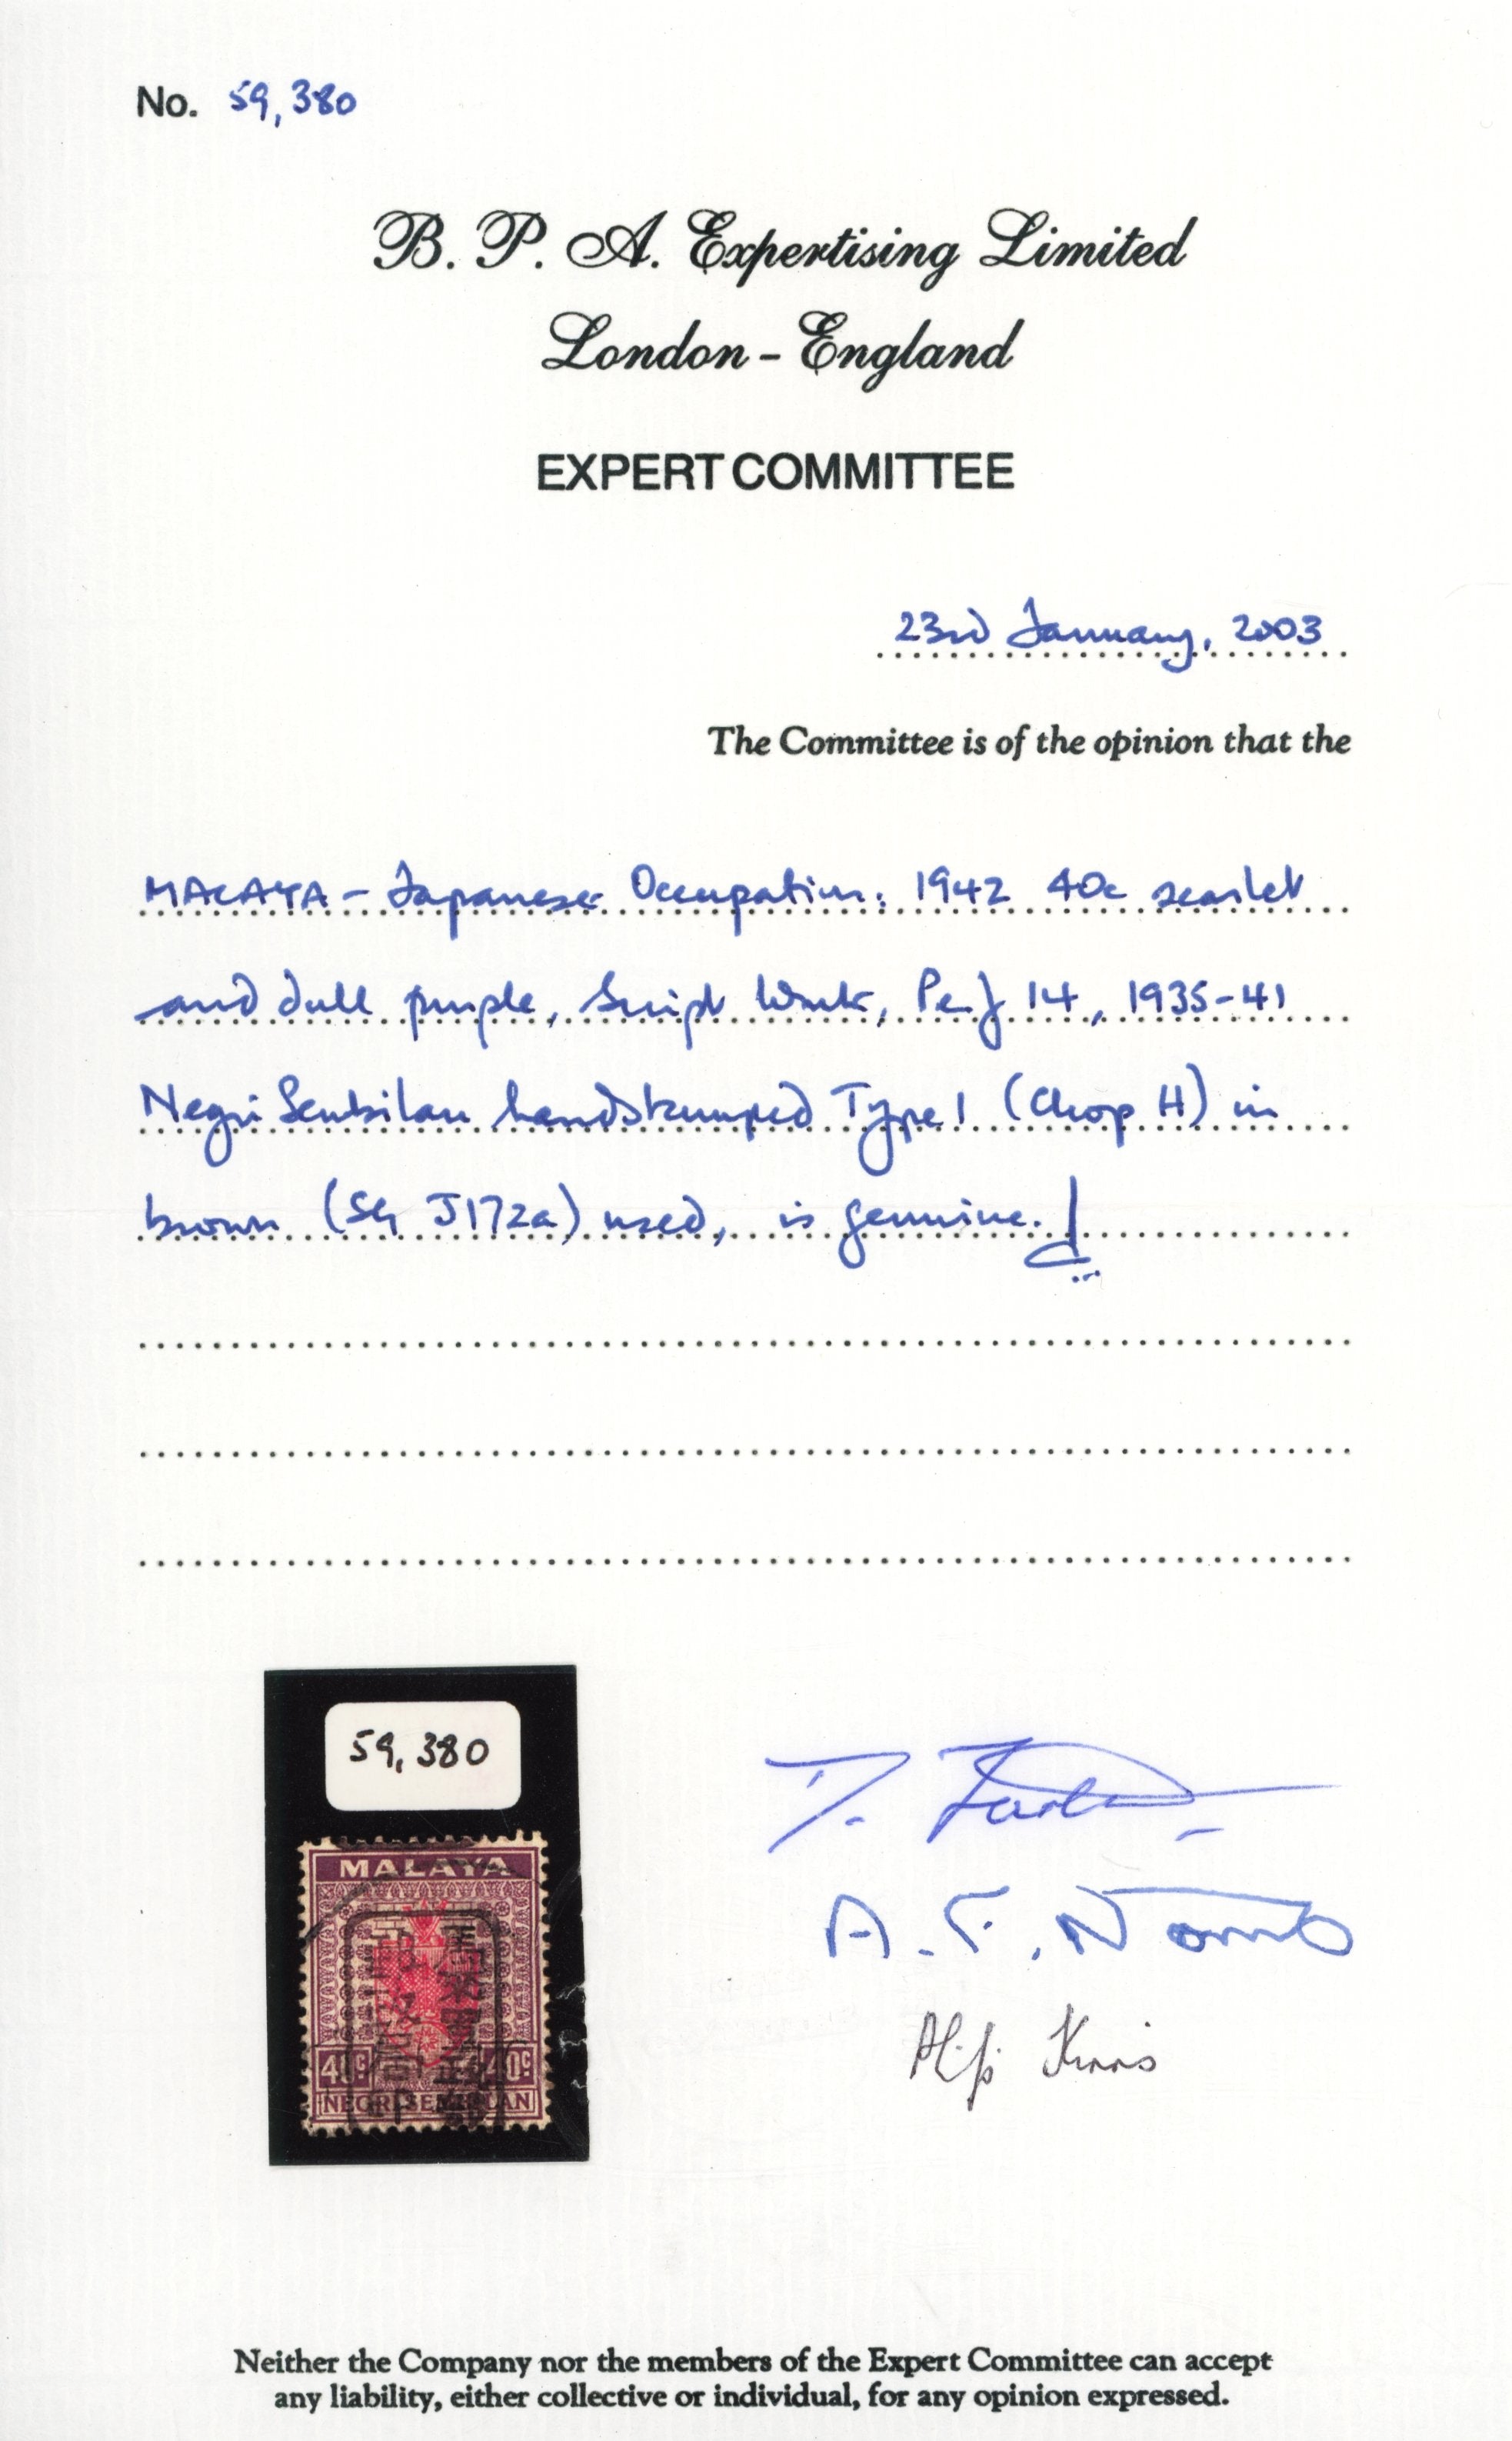 No. 59,380
B. P. A. Expertising Limited
London - England
EXPERT COMMITTEE
23rd January, 2003
The Committee is of the opinion that the
MALAYA - Japanese Occupation: 1942 40c scarlet
and dull purple, Script Wmk, Perf 14, 1935-41
Negri Sembilan handstamped Type 1 (Chop H) in
brown (SG J172a) used, is genuine.
59,380
MALAYA
40c 40c
NEGRI SEMBILAN
Neither the Company nor the members of the Expert Committee can accept
any liability, either collective or individual, for any opinion expressed.